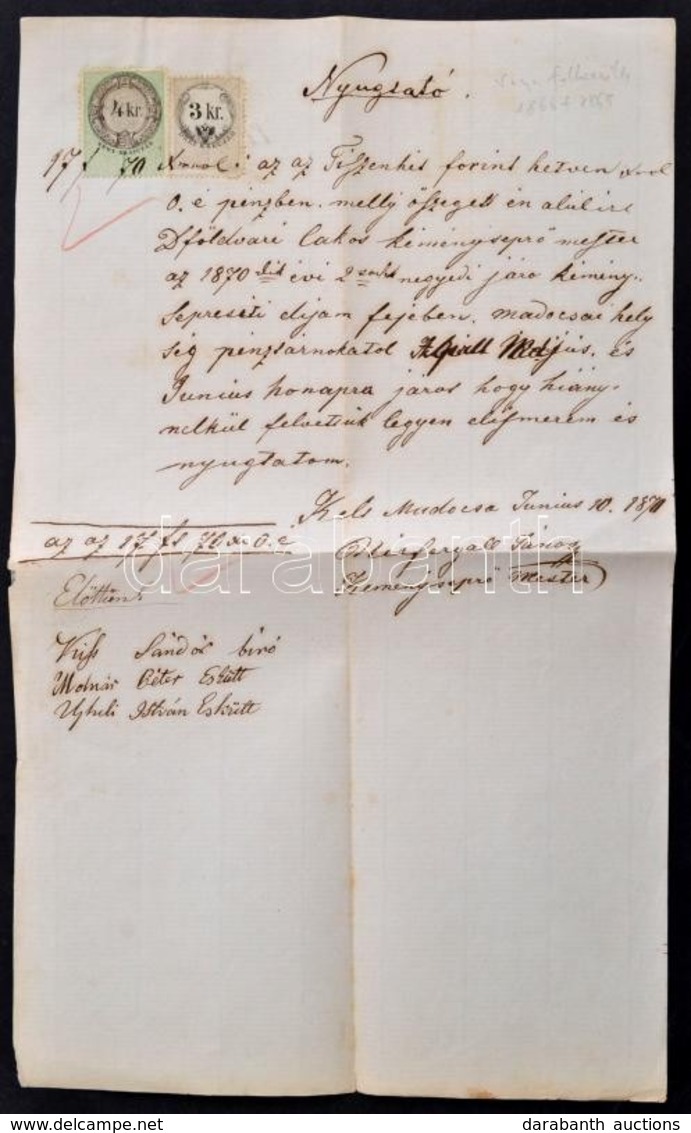 Nyugtató.
4 kr.
3 kr.
17 f 70 az az Tiszenhét forint hetven
o. é pénzben melly öszeget én alulirt
Dföldvári lakos kéménysepró mester
az 1870 dik évi 2 negyedi járo kémény
sepreséti dijam fejében madocsai hely
ség pénztárnokatol Május és
Junius honapra járot hogy hiány
nelkül felvettük legyen elismerem és
nyugtatom.
Kelt Madocsa Junius 10. 1870
az az 17 ft. 70 xr O. é
János
Kéménysepró Mester
Előttünk
Kiss Sándor biró
Molnár Péter Eskütt
Ujheli István Eskütt
darabanth
darabanth auctions